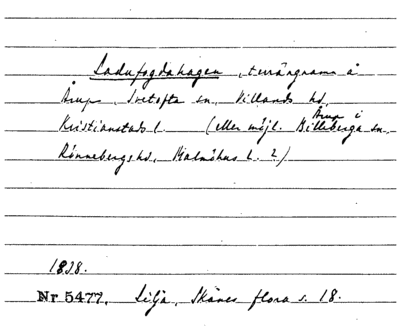 Ladufogdahagen, terrängnamn å
Årup, Ivetofta sn, Villands hd,
Kristianstads l. (eller möjl. Årup i Billeberga sn.
Rönnebergs hd, Malmöhus l. ?)
1838.
Nr 5477. Lilja, Skånes flora s. 18.